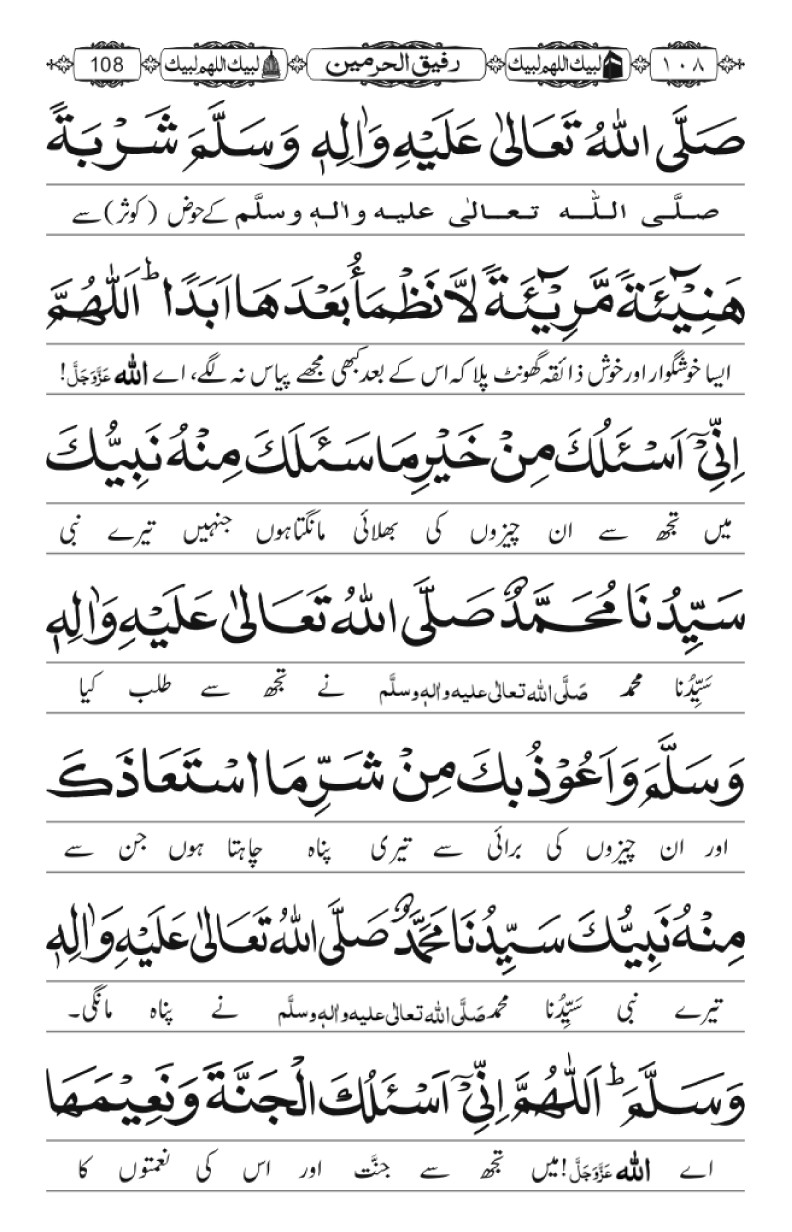 ۱۰۸ لبيك اللهم لبيك رفيق الحرمين لبيك اللهم لبيك 108
صَلَّى اللهُ تَعَالٰى عَلَيْهِ وَاٰلِهٖ وَسَلَّمَ شَرْبَةً
صلَّی اللّٰہ تعالٰی علیہ واٰلہٖ وسلَّم کے حوض (کوثر) سے
هَنِيْٓئَةً مَّرِيْٓئَةً لَّا نَظْمَأُ بَعْدَهَا اَبَدًا ؕ اَللّٰهُمَّ
ایسا خوشگوار اور خوش ذائقہ گھونٹ پلا کہ اس کے بعد کبھی مجھے پیاس نہ لگے، اے اللہ عَزَّوَجَلَّ!
اِنِّيْٓ اَسْئَلُكَ مِنْ خَيْرِ مَا سَئَلَكَ مِنْهُ نَبِيُّكَ
میں تجھ سے ان چیزوں کی بھلائی مانگتا ہوں جنہیں تیرے نبی
سَيِّدُنَا مُحَمَّدٌ صَلَّى اللهُ تَعَالٰى عَلَيْهِ وَاٰلِهٖ
سَیِّدُنا محمد صَلَّی اللہ تعالٰی علیہ واٰلہٖ وسلَّم نے تجھ سے طلب کیا
وَسَلَّمَ وَاَعُوْذُ بِكَ مِنْ شَرِّ مَا اسْتَعَاذَكَ
اور ان چیزوں کی برائی سے تیری پناہ چاہتا ہوں جن سے
مِنْهُ نَبِيُّكَ سَيِّدُنَا مُحَمَّدٌ صَلَّى اللهُ تَعَالٰى عَلَيْهِ وَاٰلِهٖ
تیرے نبی سَیِّدُنا محمد صَلَّی اللہ تعالٰی علیہ واٰلہٖ وسلَّم نے پناہ مانگی۔
وَسَلَّمَ ؕ اَللّٰهُمَّ اِنِّيْٓ اَسْئَلُكَ الْجَنَّةَ وَنَعِيْمَهَا
اے اللہ عَزَّوَجَلَّ! میں تجھ سے جنَّت اور اس کی نعمتوں کا